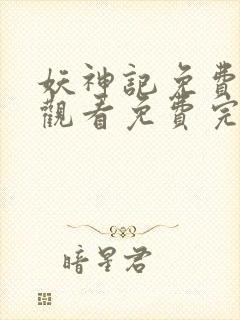 妖神記免費
觀看免費完
暗星君